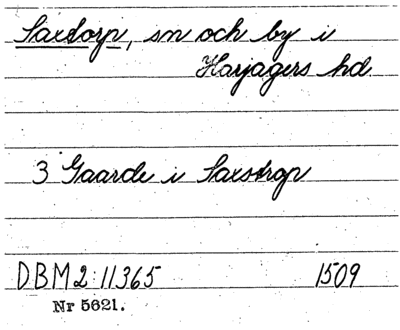 Saxtorp, sn och by i
Harjagers hd
3 Gaarde i Saxstrop
DBM2:11365 1509
Nr 5621.